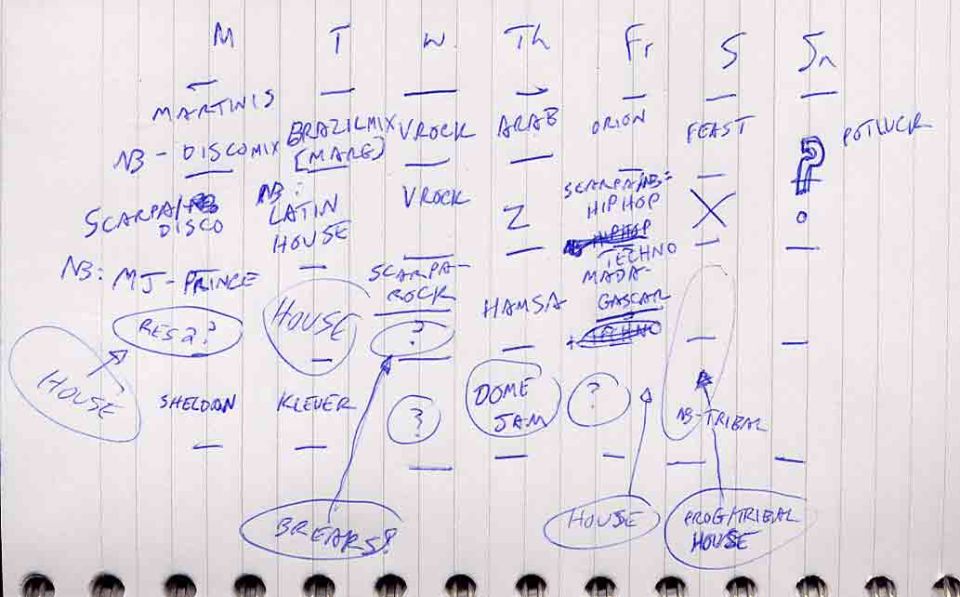 M T W Th Fr S Sn
MARTINIS
NB - DISCOMIX
BRAZILMIX
(MARE)
VROCK
ARAB
ORION
FEAST
POTLUCK
?
SCARPA/
DISCO
NB:
LATIN
HOUSE
VROCK
Z
SCARPA/NB:
HIPHOP
HIPHOP
TECHNO
X
NB: MJ-PRINCE
SCARPA-
ROCK
HAMSA
MADA-
GASCAR
+ TECHNO
RES2?
HOUSE
?
HOUSE
SHELDON
KLEVER
?
DOME
JAM
?
NB-TRIBAL
BREAKS?
HOUSE
PROG/TRIBAL
HOUSE